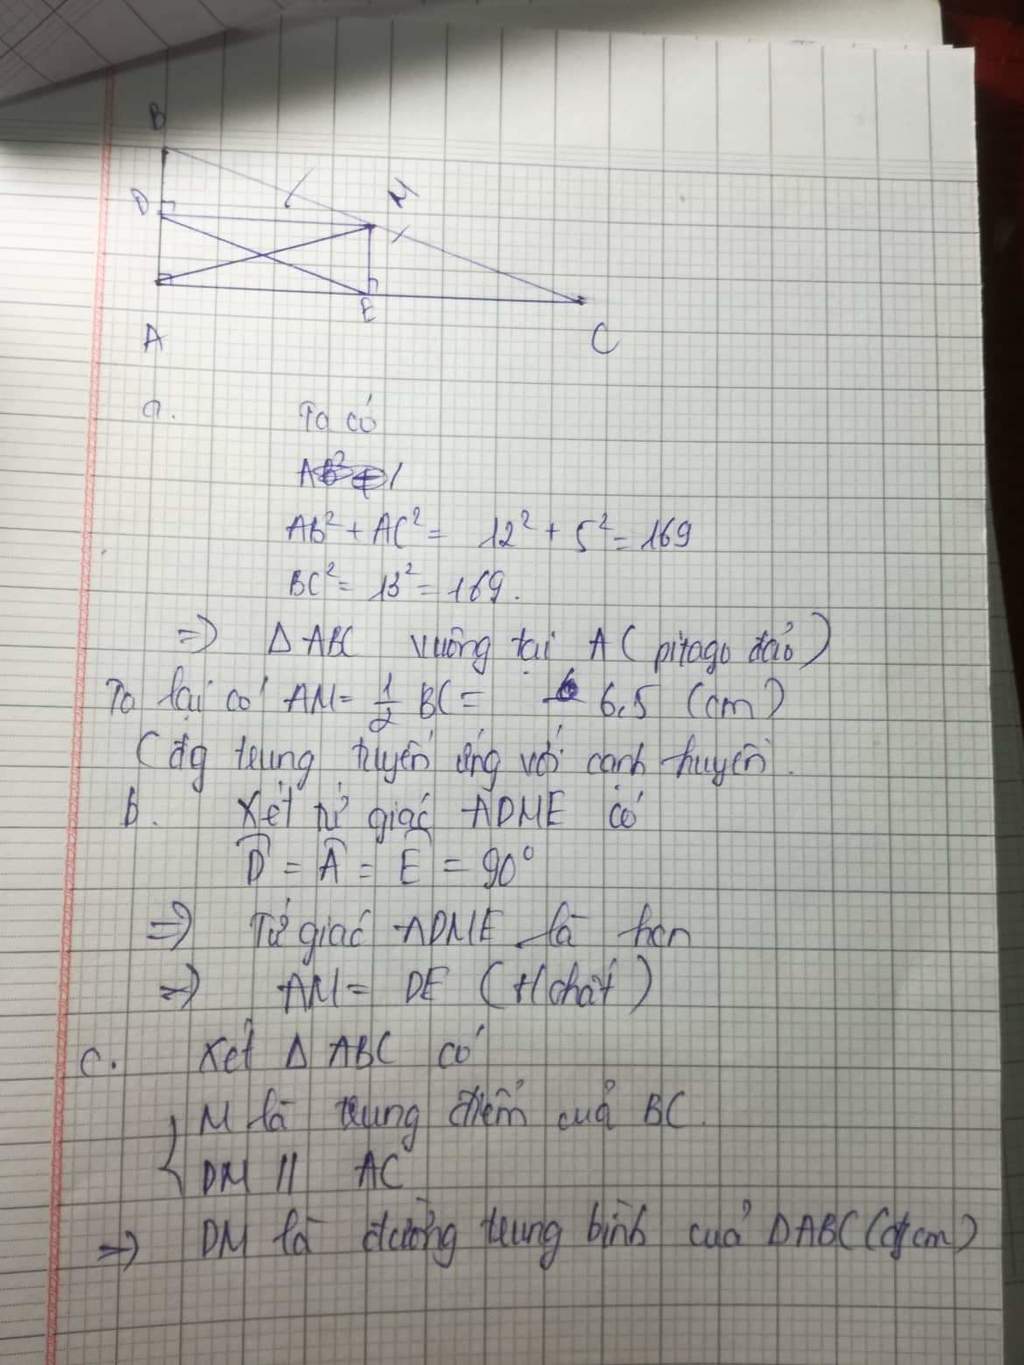 B
D
M
E
A
C
a. Ta có
AB² + AC² = 12² + 5² = 169
BC² = 13² = 169.
=> Δ ABC vuông tại A ( pitago đảo )
Ta lại có AM = 1/2 BC = 6,5 (cm)
( đg trung tuyến ứng với cạnh huyền .
b. Xét tứ giác ADME có
D̂ = Â = Ê = 90°
=> Tứ giác ADME là hcn
=> AM = DE ( t/chất )
c. Xét Δ ABC có
{ M là trung điểm của BC.
DM // AC
=> DM là đường trung bình của ΔABC (đcm)